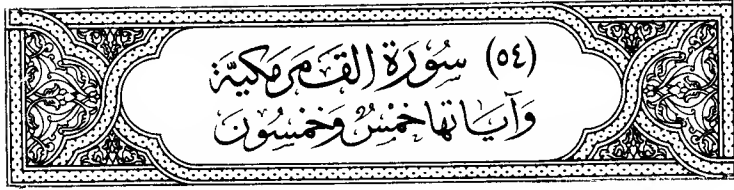 (٥٤) سُوْرَة القَمَر مَكيَّة
وَآياتها خَمْسٌ وَخَمْسُونَ